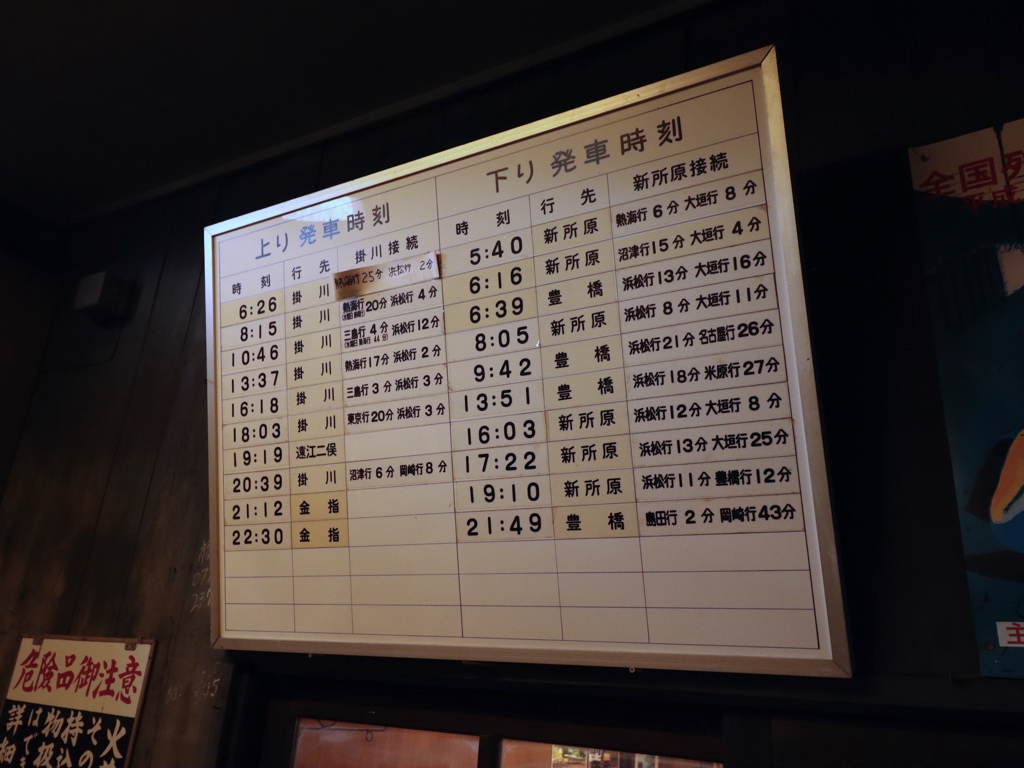 上り 発車時刻
時刻 行先 掛川接続
6:26 掛川 熱海行25分 浜松行2分
8:15 掛川 熱海行20分 浜松行4分
10:46 掛川 三島行4分 浜松行12分
13:37 掛川 熱海行17分 浜松行2分
16:18 掛川 三島行3分 浜松行3分
18:03 掛川 東京行20分 浜松行3分
19:19 遠江二俣
20:39 掛川 沼津行6分 岡崎行8分
21:12 金指
22:30 金指
下り 発車時刻
時刻 行先 新所原接続
5:40 新所原 熱海行6分 大垣行8分
6:16 新所原 沼津行15分 大垣行4分
6:39 豊橋 浜松行13分 大垣行16分
8:05 新所原 浜松行8分 大垣行11分
9:42 豊橋 浜松行21分 名古屋行26分
13:51 豊橋 浜松行18分 米原行27分
16:03 新所原 浜松行12分 大垣行8分
17:22 新所原 浜松行13分 大垣行25分
19:10 新所原 浜松行11分 豊橋行12分
21:49 豊橋 島田行2分 岡崎行43分
危険品御注意
火
その
持込
物扱
はで
詳細
全国
平成
主